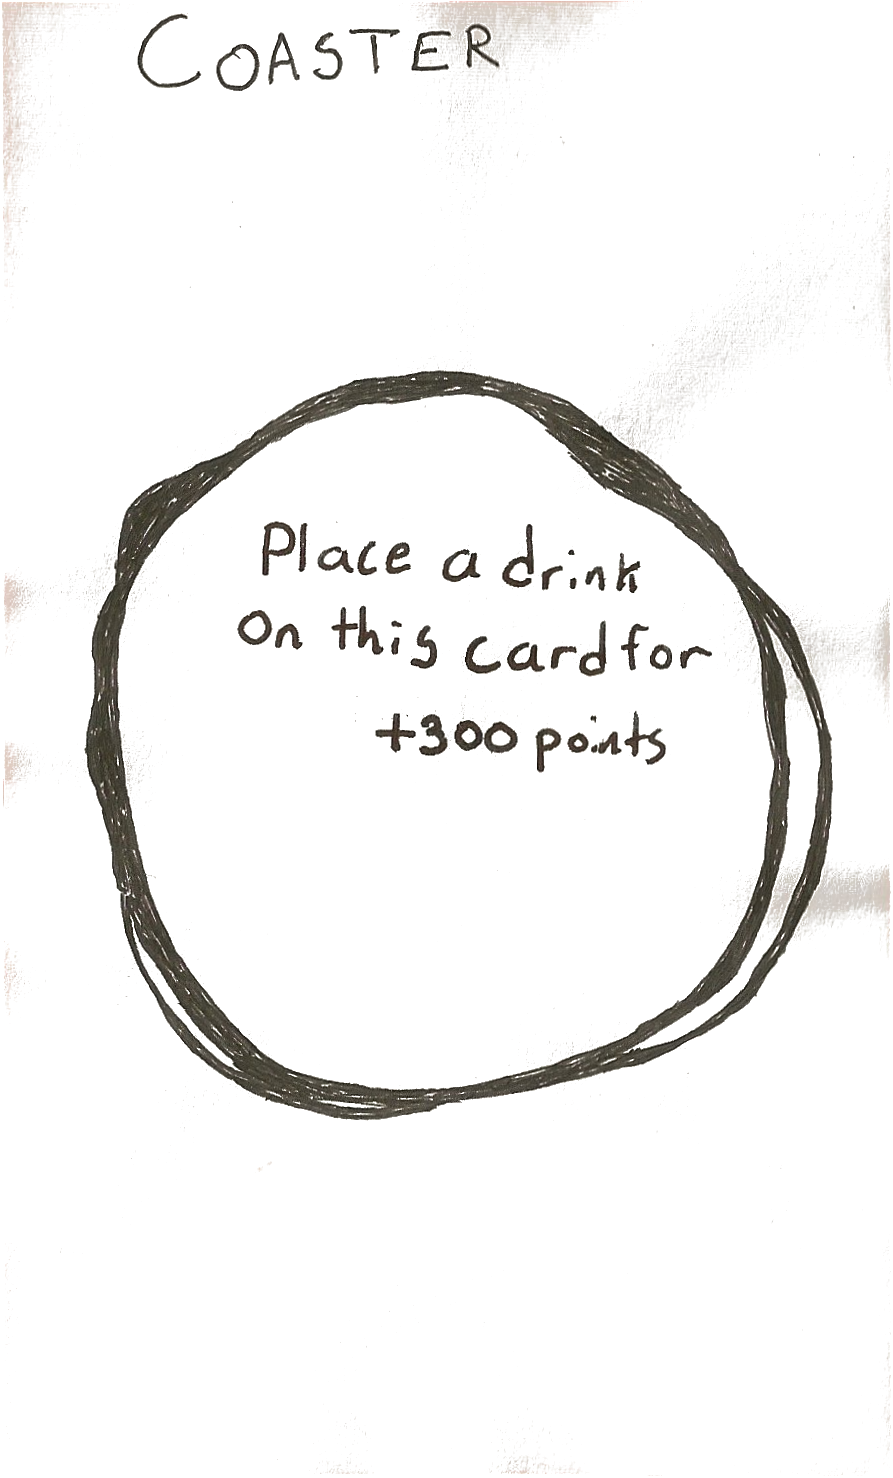 COASTER
Place a drink
on this card for
+300 points